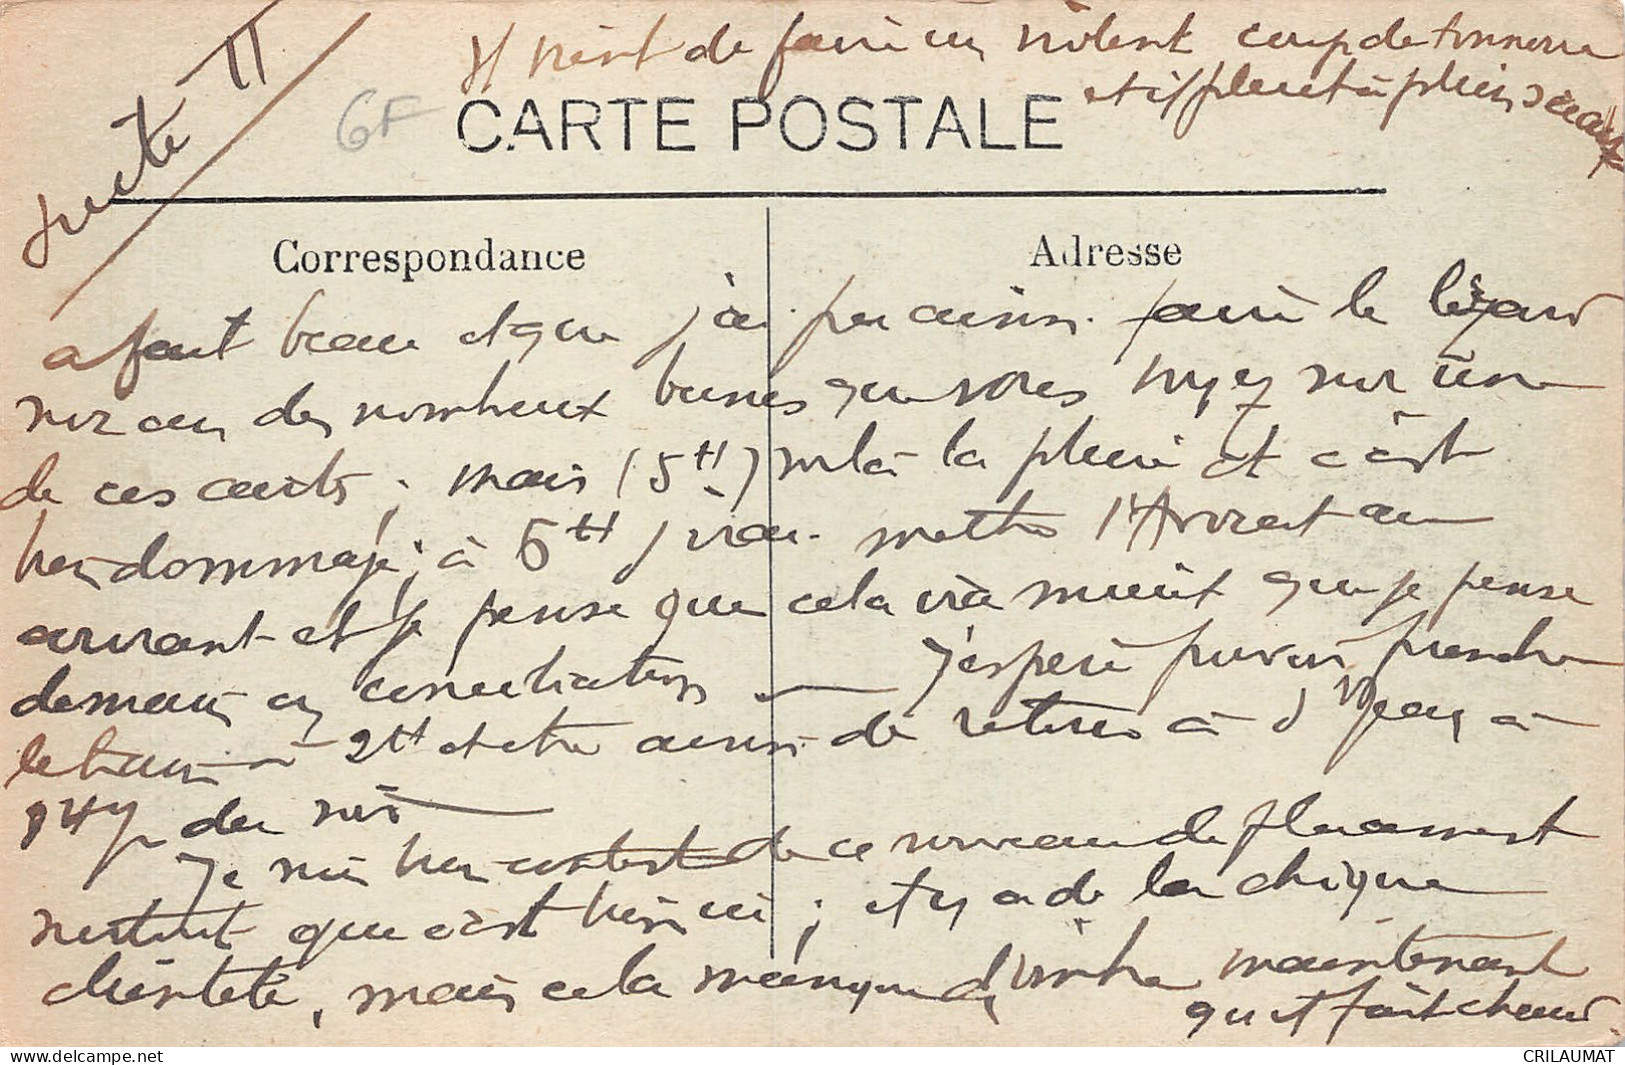 suite II
Il vient de faire un violent coup de tonnerre
et il pleut à pleins seaux
6F
CARTE POSTALE
Correspondance
Adresse
a fait beau et que j'ai pu ainsi faire le lézard
sur un des nombreux bancs que vous voyez sur une
de ces cartes ; mais (5H) voilà la pluie et c'est
bien dommage ; à 6H j'irai mettre l'Avocat au
courant et je pense que cela ira mieux que je pense
demain en conciliation — J'espère pouvoir prendre
le train à 2H et être ainsi de retour à à
8H du soir
Je suis bien content de ce nouveau déplacement
surtout que c'est bien ici ; et y a de la chique
clientèle, mais cela manque d'ombre maintenant
qu'il fait chaud
CRILAUMAT